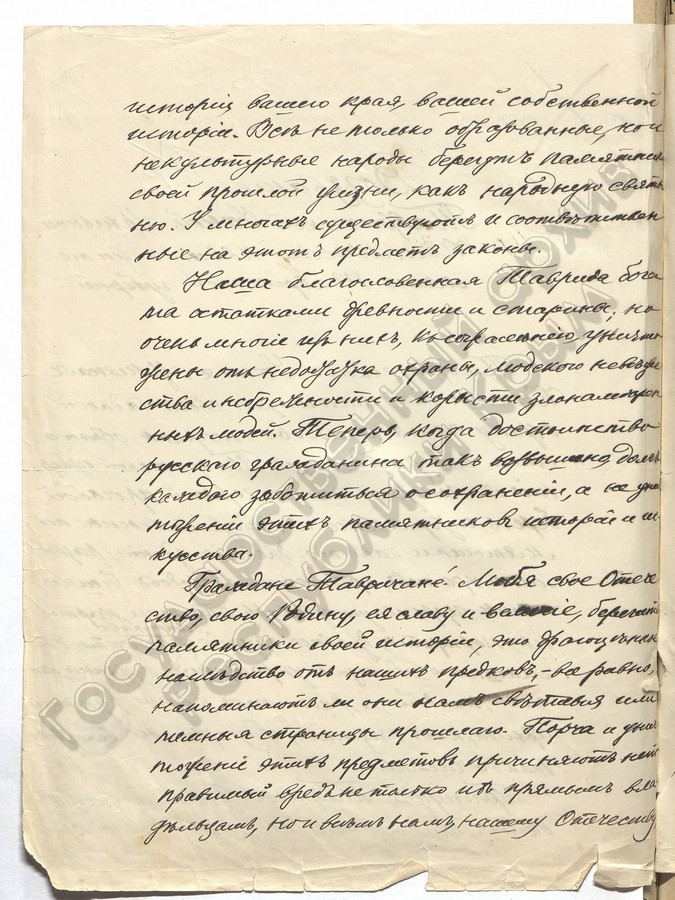 исторіи вашего края, вашей собственной
исторіи. Всѣ не только образованные, но и
некультурные народы берегутъ памятники
своей прошлой жизни, какъ народную святы
ню. У многихъ существуютъ и соотвѣтствен
ные на этотъ предметъ законы.
Наша благословенная Таврида бога
та остатками древности и старины, но
очень многіе изъ нихъ, къ сожалѣнію, уничто
жены отъ недостатка охраны, людского невѣже
ства и небрежности и корысти злонамѣрен
ныхъ людей. Теперь, когда достоинство
русскаго гражданина такъ возвышено, долгъ
каждаго заботиться о сохраненіи, а не уни
тоженіи этихъ памятниковъ исторіи и ис
кусства.
Граждане Тавричане! Любя свое Отече
ство, свою Родину, ея славу и величіе, берегите
памятники своей исторіи, это драгоцѣнное
наслѣдство отъ нашихъ предковъ, - все равно,
напоминаютъ ли они намъ свѣтлыя или
темныя страницы прошлаго. Порча и унич
тоженіе этихъ предметовъ причиняютъ непо
правимый вредъ не только ихъ прямымъ вла
дѣльцамъ, но и всѣмъ намъ, нашему Отечеству
Государственный архив
Республики Крым